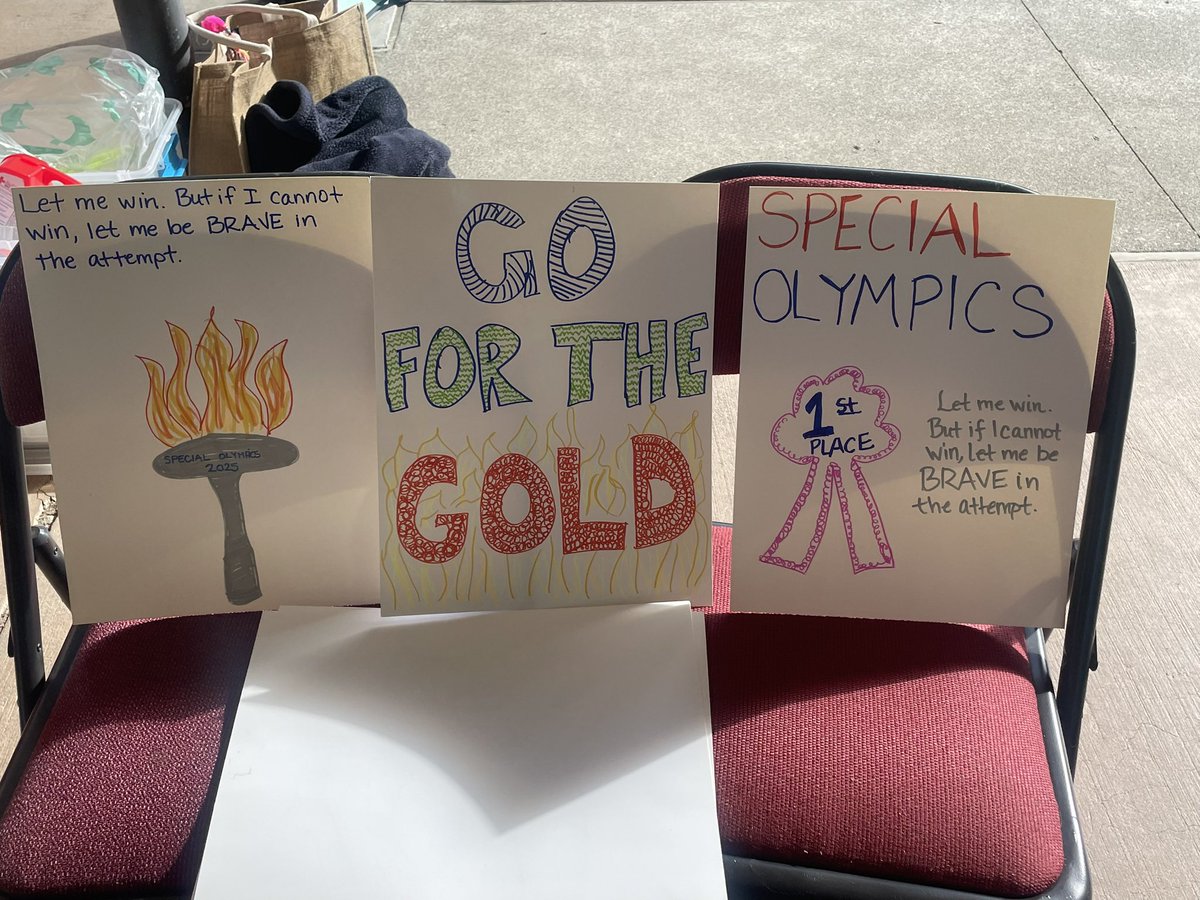 Let me win. But if I cannot
win, let me be BRAVE in
the attempt.
SPECIAL OLYMPICS
2025
GO
FOR THE
GOLD
SPECIAL
OLYMPICS
1st
PLACE
Let me win.
But if I cannot
win, let me be
BRAVE in
the attempt.